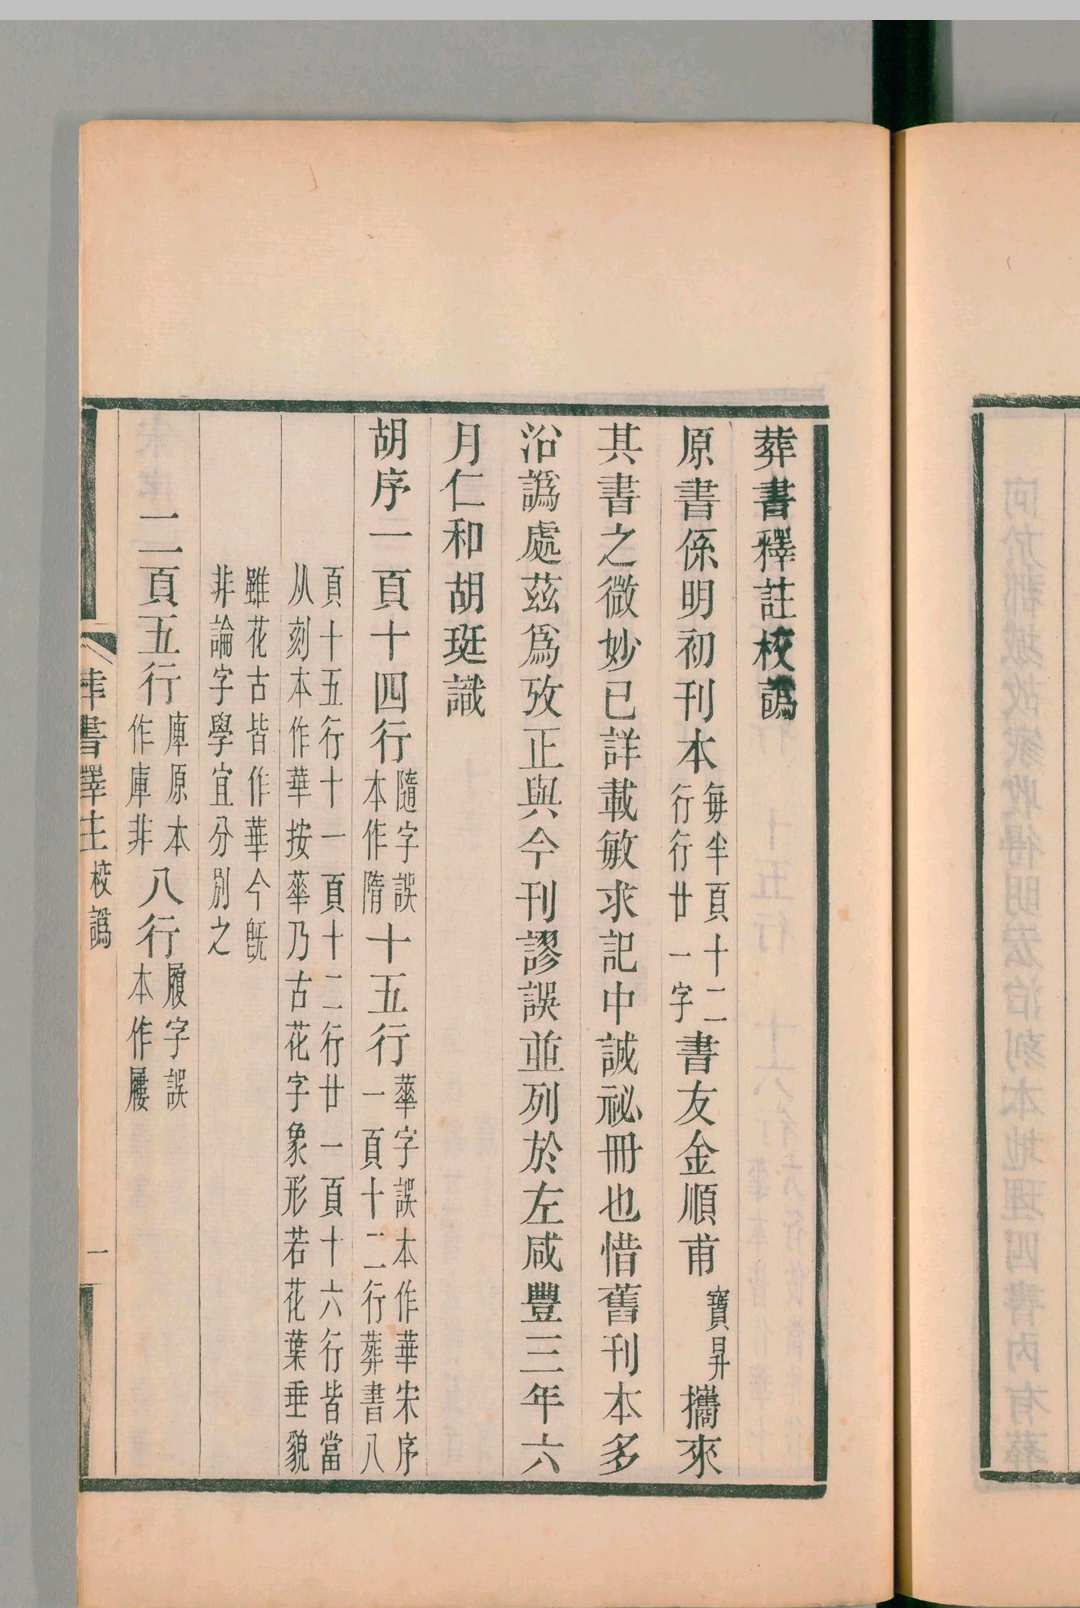 葬書釋註校譌
原書係明初刊本每半頁十二行行廿一字書友金順甫寶昇攜來
其書之微妙已詳載敏求記中誠祕冊也惜舊刊本多
沿譌處茲爲攷正與今刊謬誤並列於左咸豐三年六
月仁和胡珽識
胡序一頁十四行隨字誤本作隋十五行蕐字誤本作華宋序一頁十二行葬書八
頁十五行十一頁十二行廿一頁十六行皆當从刻本作華按蕐乃古花字象形若花葉垂貌
雖花古皆作華今旣非論字學宜分別之
二頁五行庫原本作庫非八行履字誤本作屨
葬書釋註校譌
一